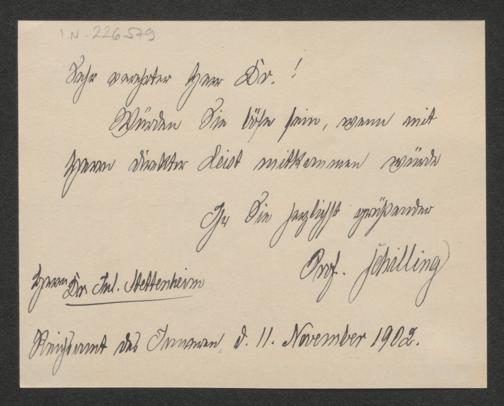 I.N. 226.579
Sehr verehrter Herr Dr.!
Würden Sie böse sein, wenn mit
Herrn Direktor Leist mitkommen würde
Ihr Sie herzlichst grüßender
Prof. Schilling
Herrn Dr. Jul. Stettenheim
Reichsamt des Inneren, d. 11. November 1902.